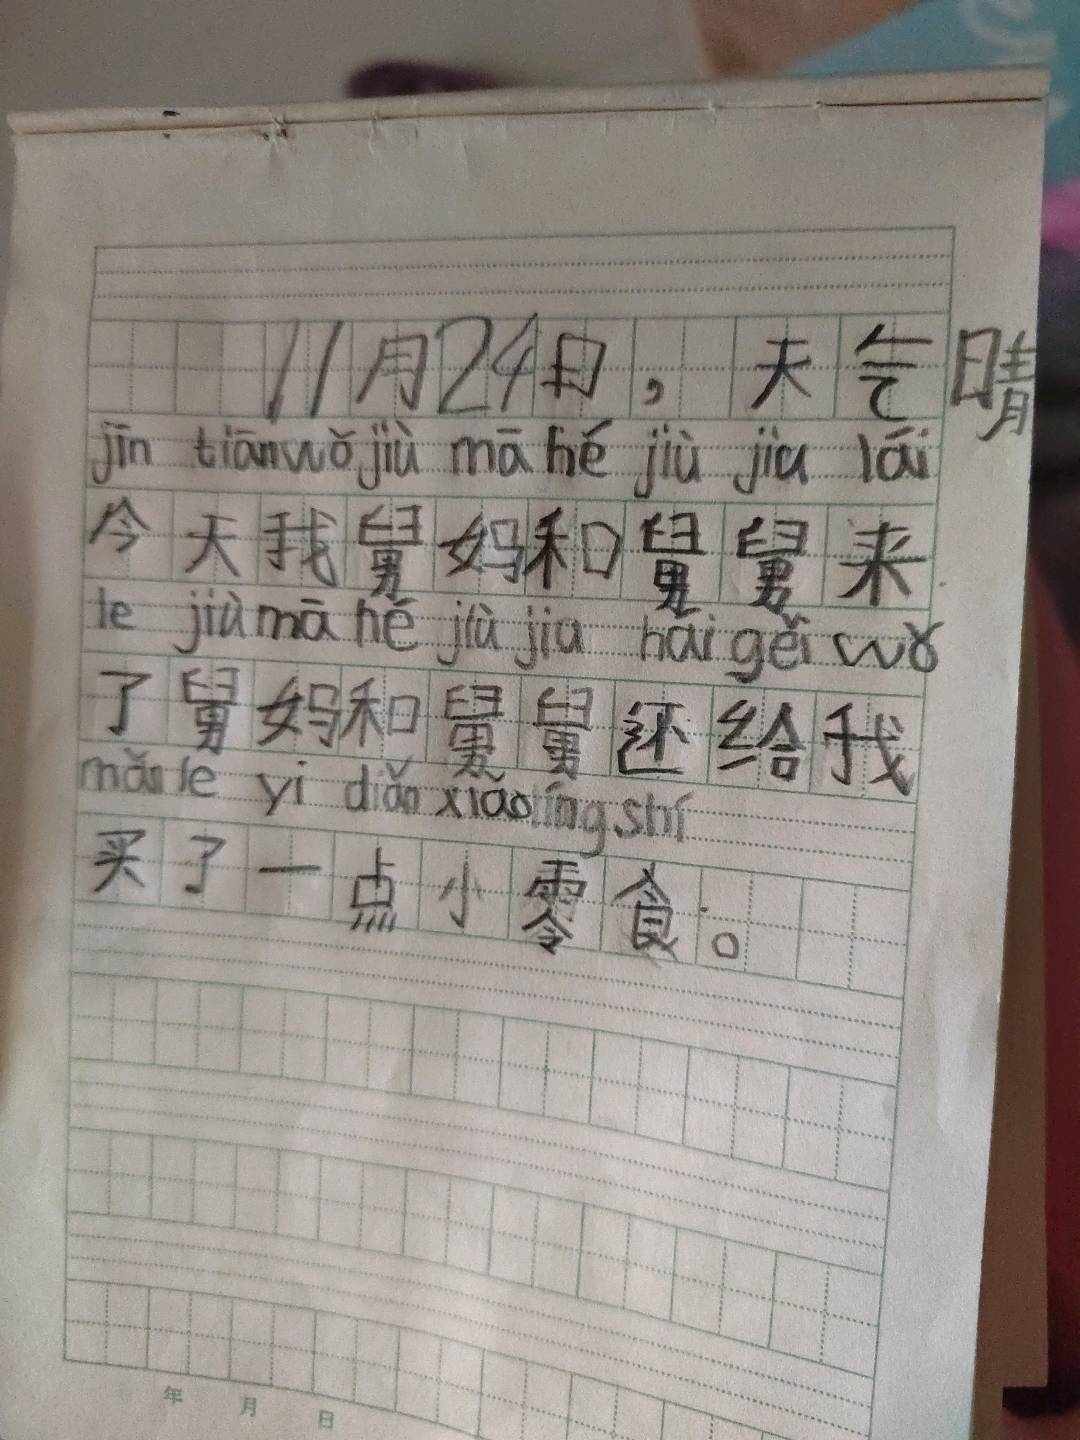 11月24日，天气晴
jīn tiān wǒ jiù mā hé jiù jiu lái
今天我舅妈和舅舅来
le jiù mā hé jiù jiu hái gěi wǒ
了舅妈和舅舅还给我
mǎi le yì diǎn xiǎo líng shí
买了一点小零食。
年 月 日